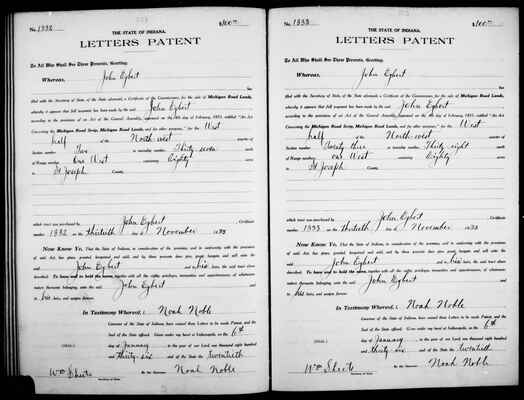 No. 1332 $100.00
THE STATE OF INDIANA.
LETTERS PATENT
To All Who Shall See These Presents, Greeting:
Whereas, John Egbert
has
filed with the Secretary of State of the State aforesaid, a Certificate of the Commissioner, for the sale of Michigan Road Lands,
whereby it appears that full payment has been made by the said John Egbert
according to the provision of an Act of the General Assembly, approved on the of February, 1833, entitled "An Act
Concerning the Michigan Road Scrip, Michigan Road Lands, and for other purposes," for the West
half of the North west quarter of
Section number Two in township number Thirty seven north
of Range number One West containing Eighty acres
in St Joseph County,
which tract was purchased by John Egbert, Certificate
number 1332 on the thirtieth day of November 1835
Now Know Ye, That the State of Indiana, in consideration of the premises, and in conformity with the provisions
of said Act, has given, granted, bargained and sold, and by these presents does give, grant, bargain and sell unto the
said John Egbert and to his heirs, the said tract above
described: To have and to hold the same, together with all the rights, privileges, immunities and appurtenances, of whatsoever
nature thereunto belonging, unto the said John Egbert and
to his heirs, and assigns forever.
In Testimony Whereof, I Noah Noble
Governor of the State of Indiana, have caused these Letters to be made Patent, and the
Seal of the State affixed. Given under my hand at Indianapolis, on the 6th
(SEAL) day of January in the year of our Lord one thousand eight hundred
and thirty-six and of the State the twentieth
By the Governor Noah Noble
Wm Sheets
Secretary of State.
No. 1333 $100.00
THE STATE OF INDIANA.
LETTERS PATENT
To All Who Shall See These Presents, Greeting:
Whereas, John Egbert
has
filed with the Secretary of State of the State aforesaid, a Certificate of the Commissioner, for the sale of Michigan Road Lands,
whereby it appears that full payment has been made by the said John Egbert
according to the provision of an Act of the General Assembly, approved on the of February, 1833, entitled "An Act
Concerning the Michigan Road Scrip, Michigan Road Lands, and for other purposes," for the West
half of the North west quarter of
Section number Twenty three in township number Thirty eight north
of Range number one West containing Eighty acres
in St Joseph County,
which tract was purchased by John Egbert, Certificate
number 1333 on the thirtieth day of November 1835
Now Know Ye, That the State of Indiana, in consideration of the premises, and in conformity with the provisions
of said Act, has given, granted, bargained and sold, and by these presents does give, grant, bargain and sell unto the
said John Egbert and to his heirs, the said tract above
described: To have and to hold the same, together with all the rights, privileges, immunities and appurtenances, of whatsoever
nature thereunto belonging, unto the said John Egbert and
to his heirs, and assigns forever.
In Testimony Whereof, I Noah Noble
Governor of the State of Indiana, have caused these Letters to be made Patent, and the
Seal of the State affixed. Given under my hand at Indianapolis, on the 6th
(SEAL) day of January in the year of our Lord one thousand eight hundred
and thirty six and of the State the twentieth
By the Governor Noah Noble
Wm Sheets
Secretary of State.